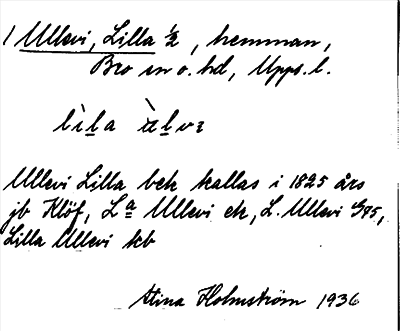 1 Ullevi, Lilla ½, hemman,
Bro sn o. hd, Upps. l.
lìla
Ullevi Lilla bek kallas i 1825 års
jb Klöf, La Ullevi ek, L. Ullevi G95,
Lilla Ullevi kb
Stina Holmström 1936